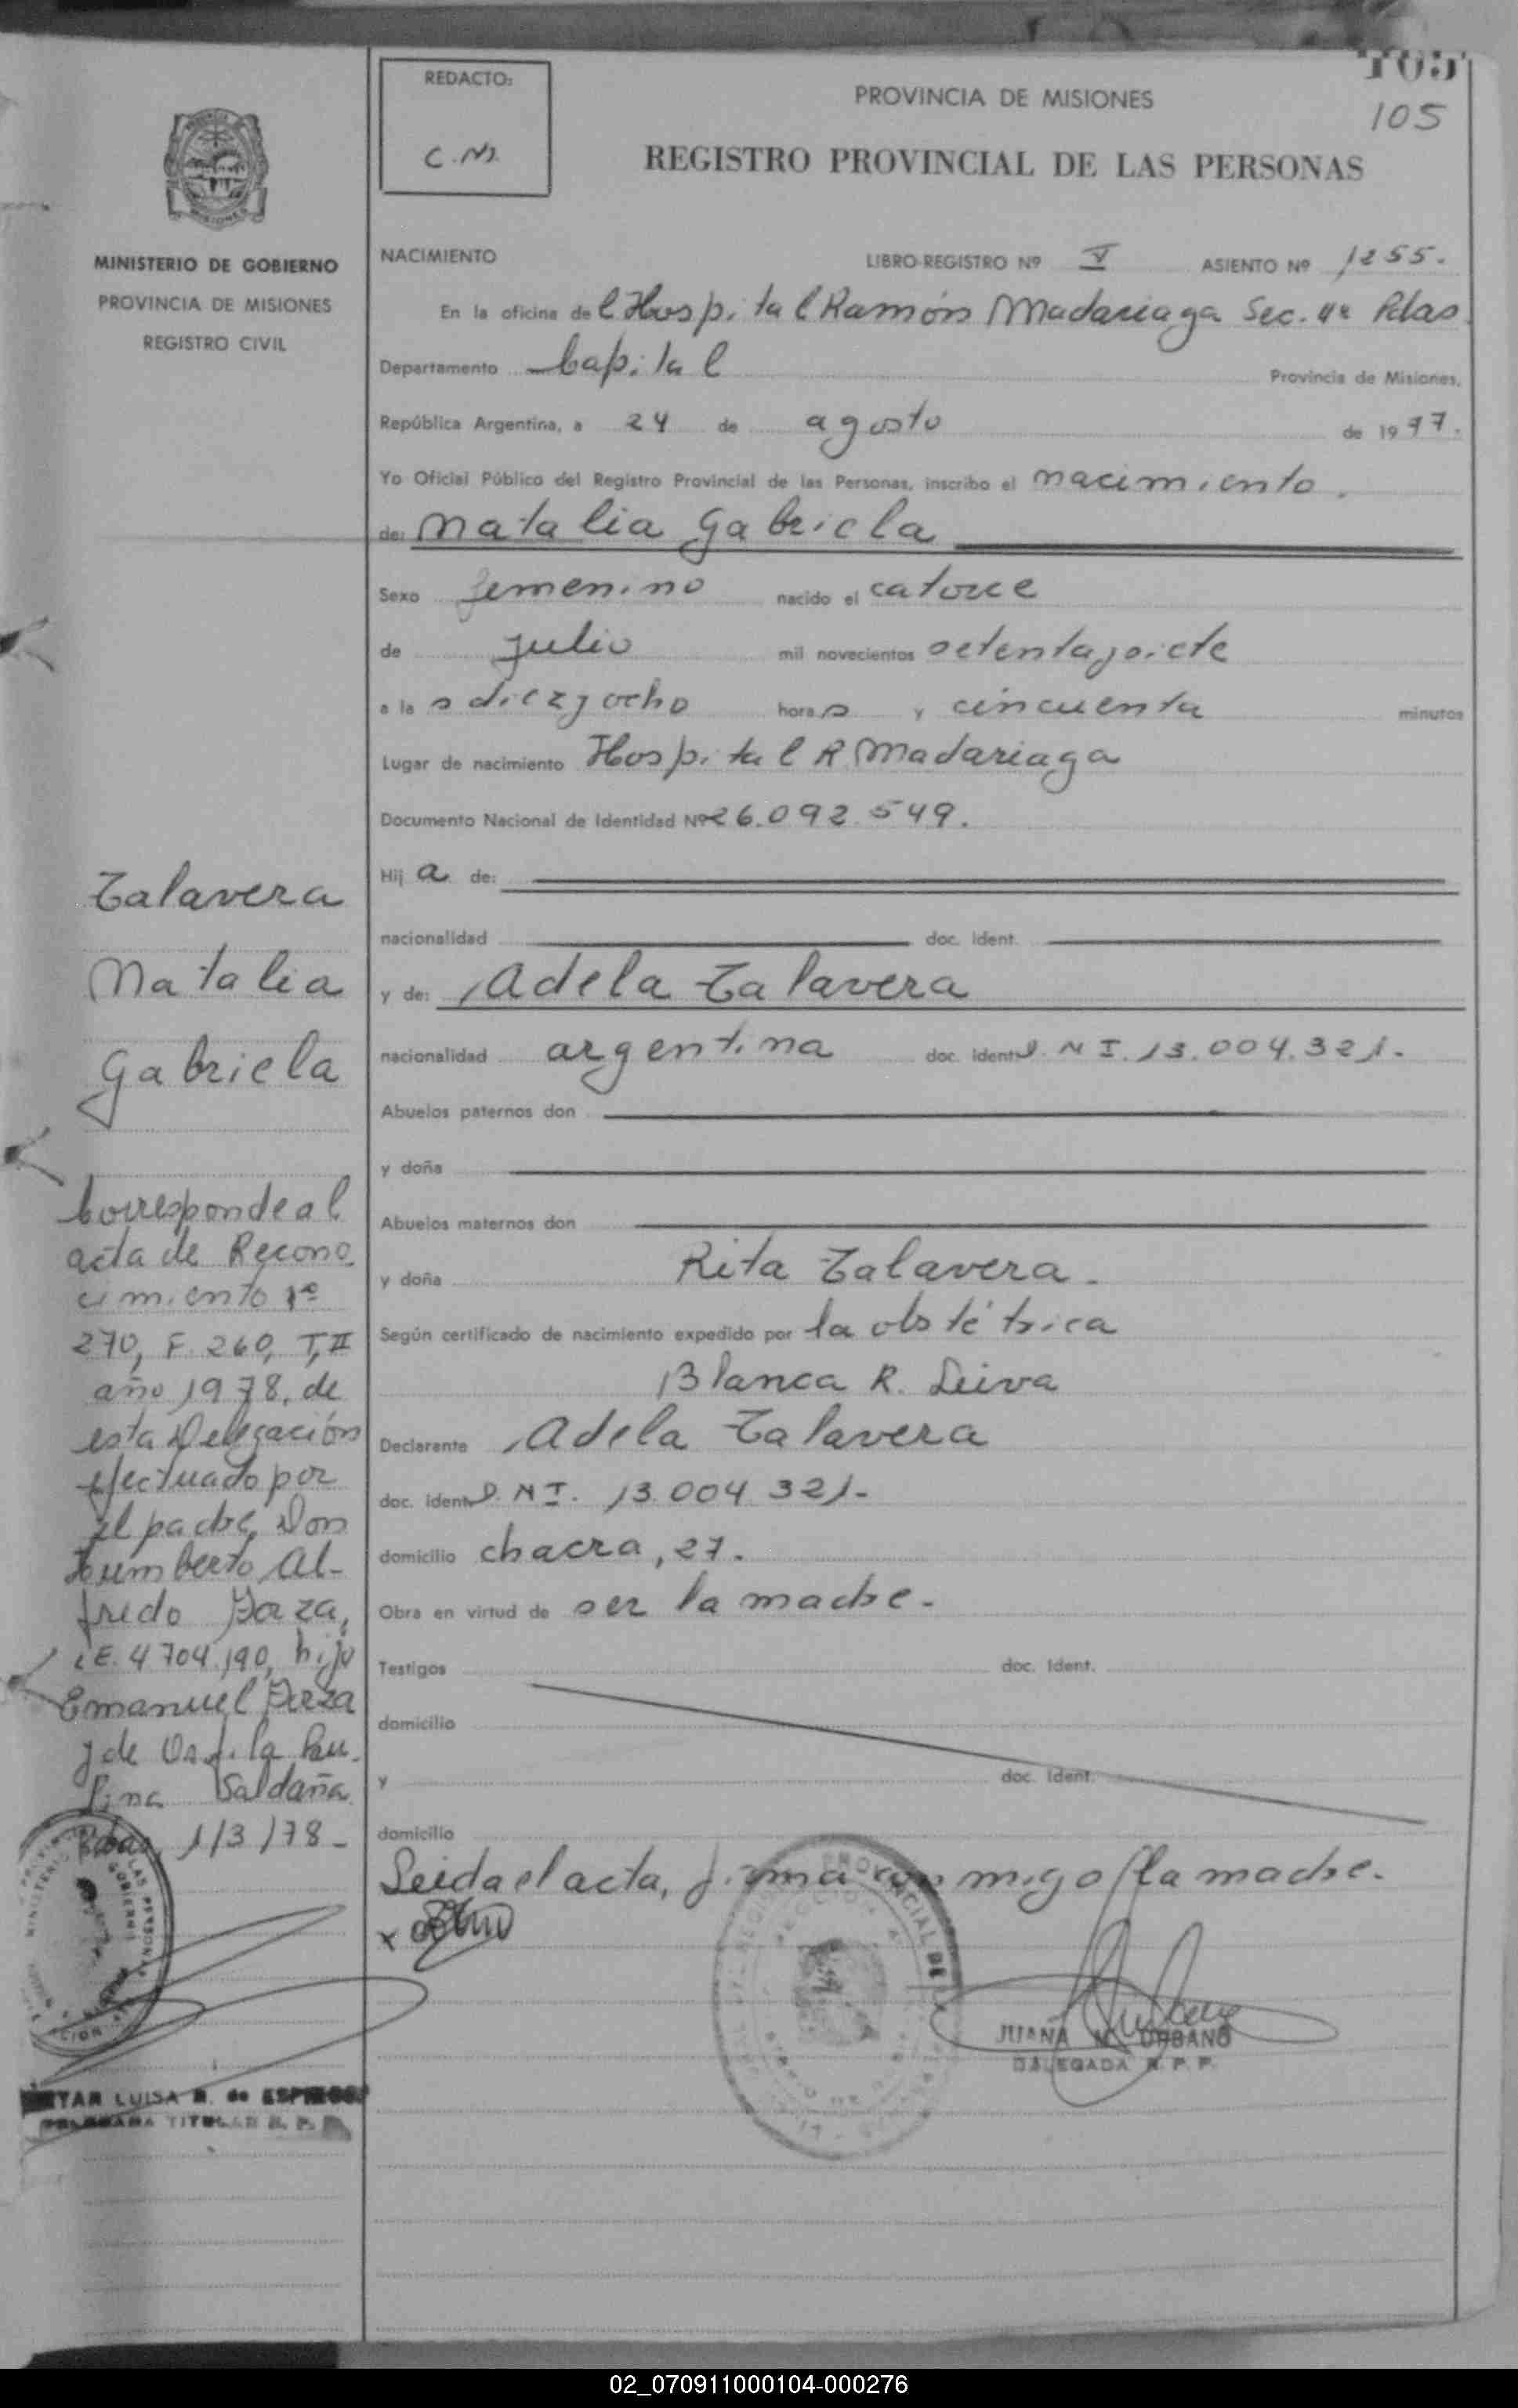 105
105
REDACTO:
C.N.
PROVINCIA DE MISIONES
REGISTRO PROVINCIAL DE LAS PERSONAS
MINISTERIO DE GOBIERNO
PROVINCIA DE MISIONES
REGISTRO CIVIL
NACIMIENTO LIBRO-REGISTRO Nº V ASIENTO Nº 1255.
En la oficina del Hospital Ramón Madariaga Sec. 4ª Pdas
Departamento Capital Provincia de Misiones.
República Argentina, a 24 de agosto de 1977.
Yo Oficial Público del Registro Provincial de las Personas, inscribo el nacimiento.
de: Natalia Gabriela
Sexo femenino nacido el catorce
de julio mil novecientos setentaysiete
a la s diezyocho hora s y cincuenta minutos
Lugar de nacimiento Hospital R. Madariaga
Documento Nacional de Identidad Nº 26.092.549.
Hij a de:
nacionalidad doc. ident.
y de: Adela Talavera
nacionalidad argentina doc. ident D.N I. 13.004.321.
Abuelos paternos don
y doña
Abuelos maternos don
y doña Rita Talavera.
Según certificado de nacimiento expedido por la obstétrica
Blanca R. Leiva
Declarante Adela Talavera
doc. ident D. N I. 13.004 321-
domicilio chacra, 27.
Obra en virtud de ser la madre.
Testigos doc. Ident.
domicilio
y doc. Ident.
domicilio
Leida el acta, firma conmigo la madre.
JUANA M. URBANO
DELEGADA R. P. P.
Talavera
Natalia
Gabriela
Corresponde al
acta de Recono
cimiento nº
270, F. 260, T, II
año 1978, de
esta Delegación
efectuado por
el padre, Don
Humberto Al-
fredo
L.E. 4 704.190, hijo
Emanuel
y de
lina Saldaña.
Pdas, 1/3/78-
LUISA R. de
TITULAR R. P. P.
02_070911000104-000276